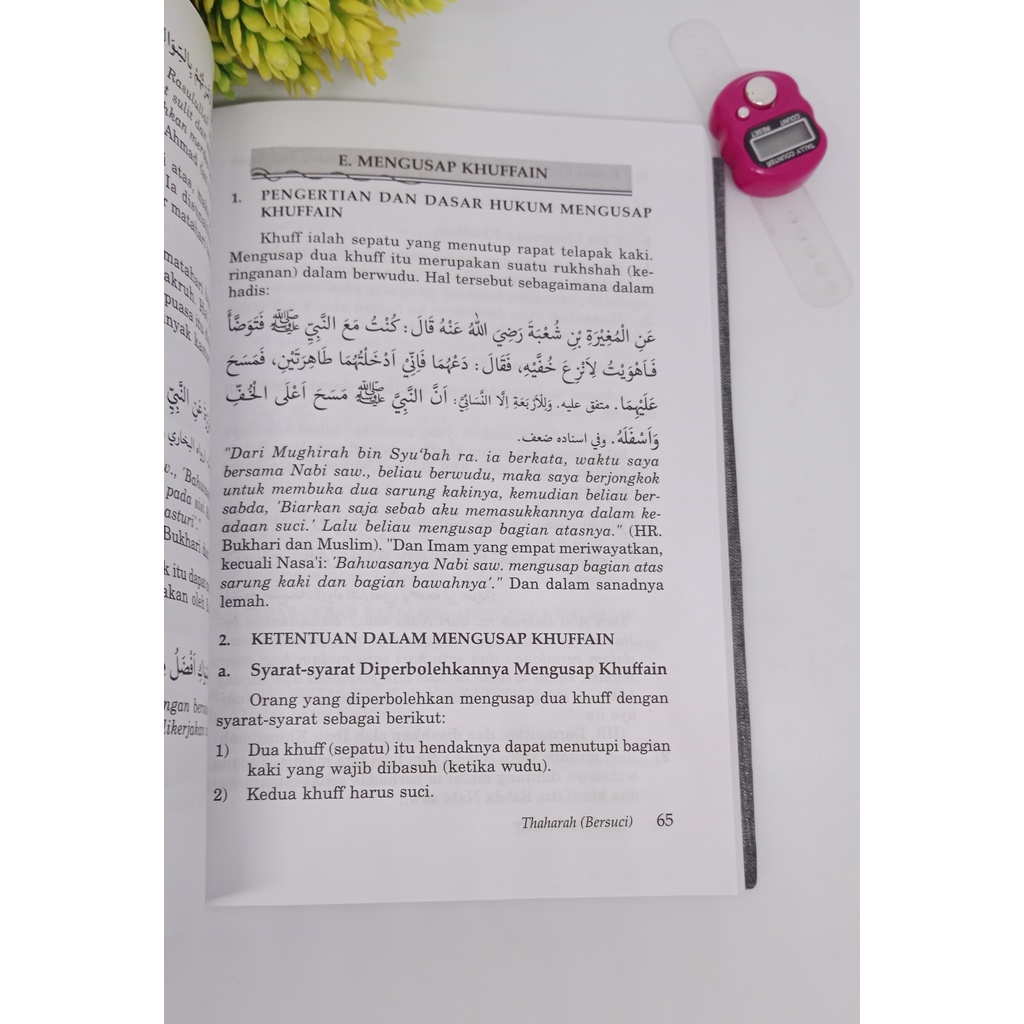 Rasulullah
sulit dan
Ahmad dan
atas, mak
Ia disun
matahari
matahari
akruh. Ha
puasa itu
nyak kas
عَنِ النَّبِيِّ
رواه البخاري
w., 'Bahwa
pada sisi
asturi'."
Bukhari da
k itu dapat
akan oleh
اَفْضَلُ
ngan bersu
likerjakan
E. MENGUSAP KHUFFAIN
1. PENGERTIAN DAN DASAR HUKUM MENGUSAP
KHUFFAIN
Khuff ialah sepatu yang menutup rapat telapak kaki.
Mengusap dua khuff itu merupakan suatu rukhshah (ke-
ringanan) dalam berwudu. Hal tersebut sebagaimana dalam
hadis:
عَنِ الْمُغِيْرَةِ بْنِ شُعْبَةَ رَضِيَ اللّٰهُ عَنْهُ قَالَ: كُنْتُ مَعَ النَّبِيِّ ﷺ فَتَوَضَّأَ
فَأَهْوَيْتُ لِأَنْزِعَ خُفَّيْهِ، فَقَالَ: دَعْهُمَا فَإِنِّيْ اَدْخَلْتُهُمَا طَاهِرَتَيْنِ، فَمَسَحَ
عَلَيْهِمَا. متفق عليه. وَلِلْاَرْبَعَةِ اِلَّا النَّسَائِيَّ: اَنَّ النَّبِيَّ ﷺ مَسَحَ اَعْلَى الْخُفِّ
وَاَسْفَلَهُ. وفي اسناده ضعف.
"Dari Mughirah bin Syu'bah ra. ia berkata, waktu saya
bersama Nabi saw., beliau berwudu, maka saya berjongkok
untuk membuka dua sarung kakinya, kemudian beliau ber-
sabda, 'Biarkan saja sebab aku memasukkannya dalam ke-
adaan suci.' Lalu beliau mengusap bagian atasnya." (HR.
Bukhari dan Muslim). "Dan Imam yang empat meriwayatkan,
kecuali Nasa'i: 'Bahwasanya Nabi saw. mengusap bagian atas
sarung kaki dan bagian bawahnya'." Dan dalam sanadnya
lemah.
2. KETENTUAN DALAM MENGUSAP KHUFFAIN
a. Syarat-syarat Diperbolehkannya Mengusap Khuffain
Orang yang diperbolehkan mengusap dua khuff dengan
syarat-syarat sebagai berikut:
1) Dua khuff (sepatu) itu hendaknya dapat menutupi bagian
kaki yang wajib dibasuh (ketika wudu).
2) Kedua khuff harus suci.
Thaharah (Bersuci) 65
TALLY COUNTER
COUNT
RESET